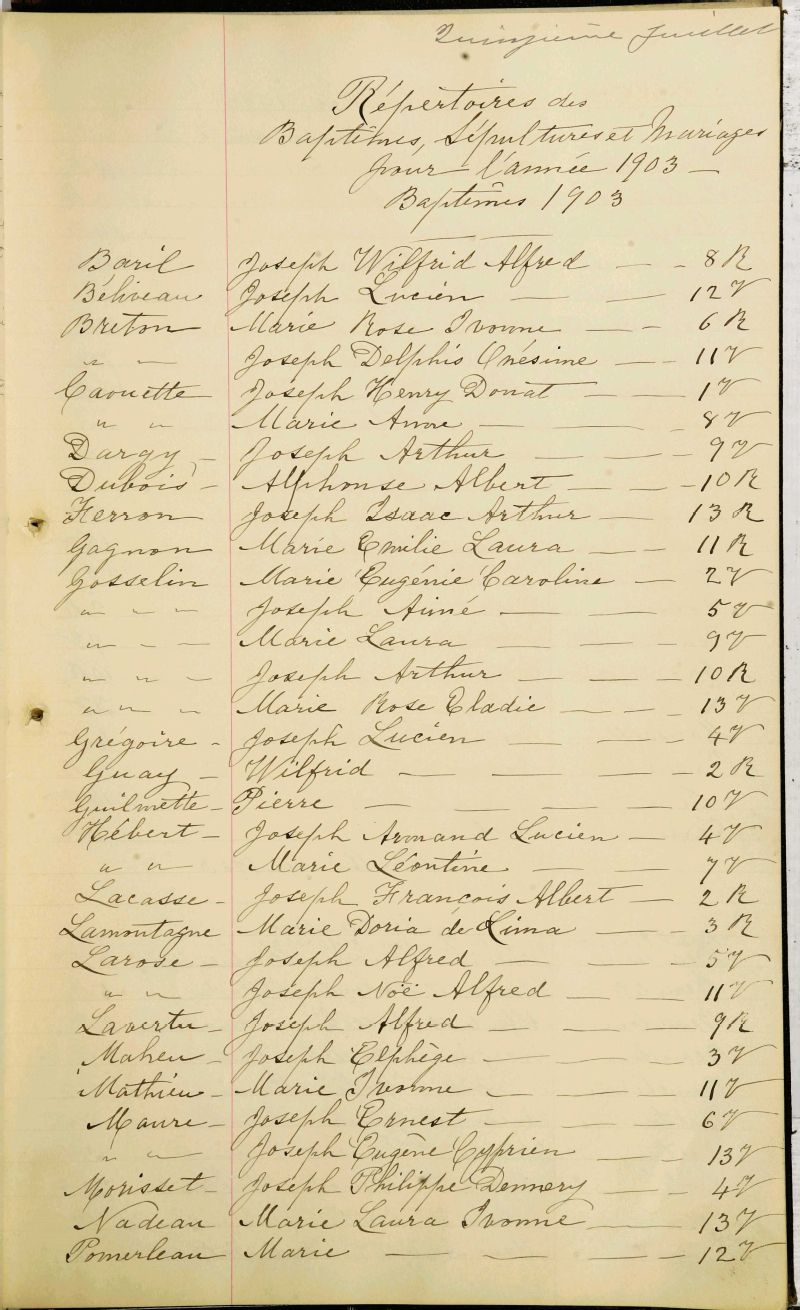 Quinzième feuillet
Répertoires des
Baptêmes, Sépultures et Mariages
pour l'année 1903 —
Baptêmes 1903
Baril Joseph Wilfrid Alfred — - 8 R
Béliveau Joseph Lucien — — 12 V
Breton Marie Rose Ivonne — - 6 R
" " Joseph Delphis Onésime — - 11 V
Caouette Joseph Henry Donat — — 1 V
" " Marie Anne — — - 8 V
Dargy - Joseph Arthur — — 9 V
Dubois - Alphonse Albert — — - 10 R
Ferron Joseph Isaac Arthur — 13 R
Gagnon Marie Emilie Laura — - 11 R
Gosselin Marie Eugénie Caroline — 2 V
" " " Joseph Aimé — — — 5 V
" " " Marie Laura — — — 9 V
" " " Joseph Arthur — — — 10 R
" " " Marie Rose Eladie — — - 13 V
Grégoire - Joseph Lucien — — - 4 V
Guay - Wilfrid — — — — 2 R
Guilmette - Pierre — — — — 10 V
Hébert - Joseph Armand Lucien — 4 V
" " Marie Léontine — — 7 V
Lacasse - Joseph François Albert — 2 R
Lamontagne Marie Doria de Lima — — 3 R
Larose - Joseph Alfred — — — 5 V
" " Joseph Noë Alfred — — 11 V
Lavertu - Joseph Alfred — — — 9 R
Maheu - Joseph Elphège — — — 3 V
Mathieu - Marie Ivonne - — — 11 V
Maure - Joseph Ernest — — — 6 V
" " Joseph Eugène Cyprien — — 13 V
Morisset - Joseph Philippe Dennery — - 4 V
Nadeau Marie Laura Ivonne — 13 V
Pomerleau Marie — — - — 12 V